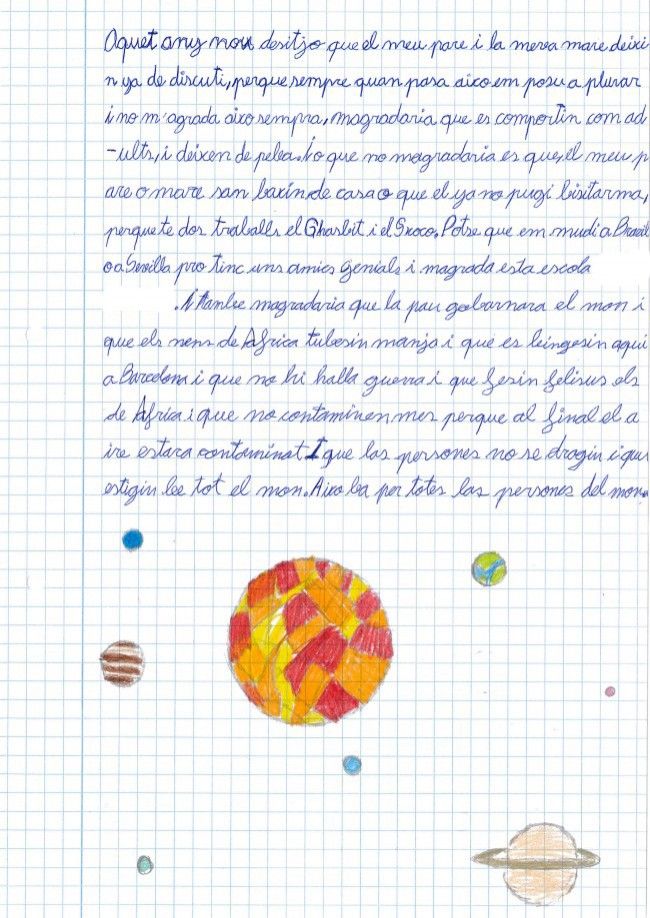 Aquet any nou desitjo que el meu pare i la meva mare deixi
n ya de discuti, perque sempre quan pasa aixo em posu a plurar
i no m'agrada aixo sempra, magradaria que es comportin com ad
-ults, i deixen de pelea. Lo que no magradaria es que, el meu p
are o mare san baxin de casa o que el ya no pugi bisitarma,
perque te dos traballs el Gharbit i el Siroco. Potse que em mudi a Brazil
o a Sevilla pro tinc uns amics genials i magrada esta escola
.I tambe magradaria que la pau gobarnara el mon i
que els nens de Africa tubesin manja i que es bingesin aqui
a Barcelona i que no hi halla guerra i que fesin felisus els
de Africa i que no contaminen mes perque al final el a
ire estara contaminat I que las persones no se drogin i que
estigin be tot el mon. Aixo ba per totes las persones del mon.